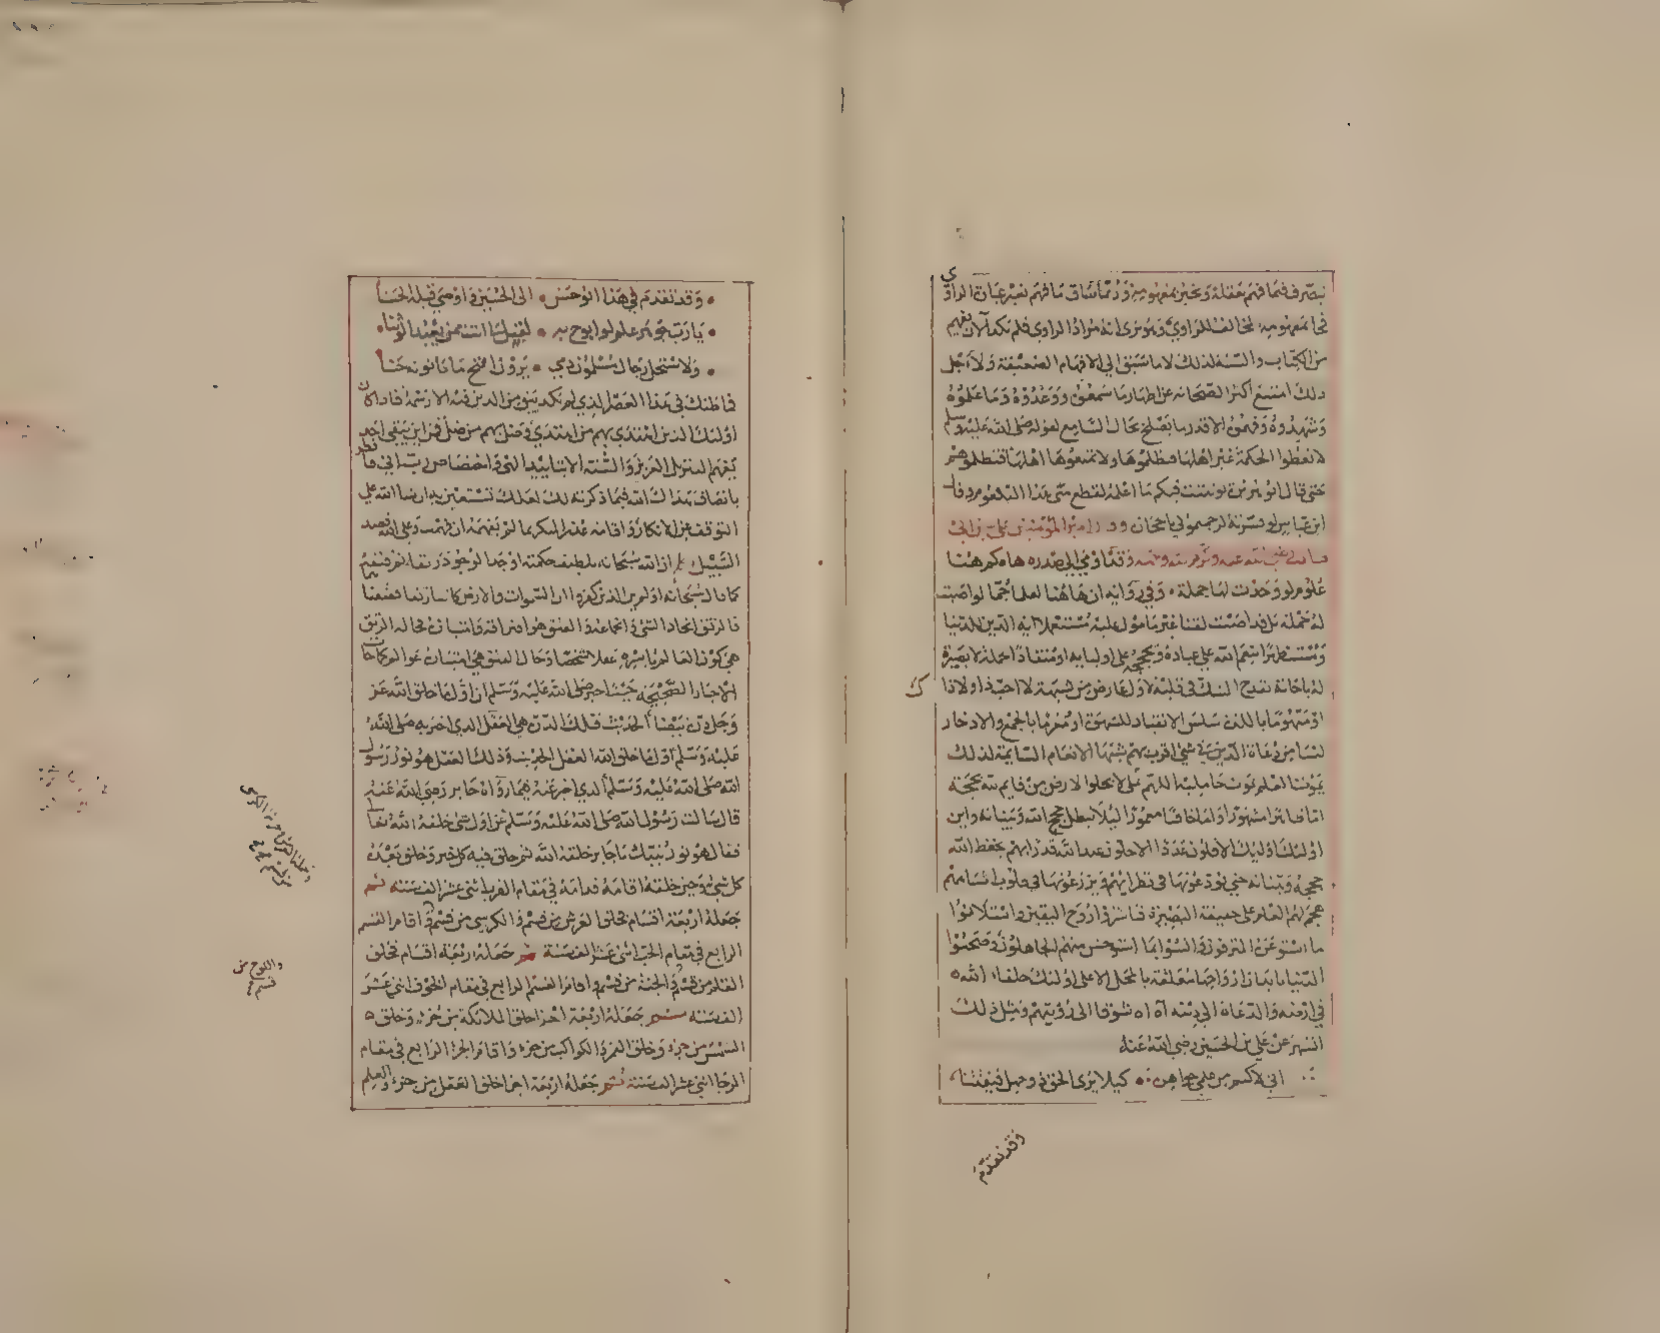 يتصرف فيما فهم بعقله ويخبر بمفهومه وربما شاق ما فهم بغير عبارة الراوي
من الكتاب والسنة لذلك لا ما سبق الى الافهام الضعيفة ولاجل
ذلك امتنع اكثر الصحابة عن اظهار ما سمعوه ووعدوه وما علموه
وشهدوه وفهموه الا قدر ما يصلح بحال السامع لقوله صلى الله عليه وسلم
لا تعطوا الحكمة غير اهلها فتظلموها ولا تمنعوها اهلها فتظلموهم
حتى قال ابو هريرة لو بثثت فيكم ما اعلمه لقطع منى هذا البلعوم وقال
ابن عباس لو فسرته لرجمتموني بالحجارة امير المؤمنين علي بن ابي
وقد اومي الى صدره هاه كم ههنا
علوم لو وجدت لها حملة وفي رواية ان هاهنا لعلما جما لو اصبت
له حملة بل قد اصبت لقنا غير مامون عليه مستعملا الة الدين للدنيا
ومستظهرا بنعم الله على عباده وبحججه على اوليائه او منقادا لحملة لا بصيرة
له باحنائه ينقدح الشك في قلبه لاول عارض من شبهة لا احب ذا ولا ذا
او منهوما باللذة سلس الانقياد للشهوة او مغرما بالجمع والادخار
ليسا من دعاة الدين في شي اقرب بهم شبها الانعام السايمة لذلك
يموت العلم بموت حامليه اللهم بلى لا تخلوا الارض من قايم لله بحججه
اما ظاهرا مشهورا واما خافيا مغمورا ليلا تبطل حجج الله وبيناته واين
اولئك اوليك الاقلون عددا الاجلون عند الله قدرا بهم يحفظ الله
حججه وبيناته حتى يودعونها في نظرايهم ويزرعونها في قلوب اشباههم
هجم بهم العلم على حقيقة البصيرة فباشروا روح اليقين واستلانوا
ما استوعره المترفون وانسوا بما استوحش منهم الجاهلون وصحبوا
الدنيا بابدان ارواحها معلقة بالمحل الاعلى اولئك خلفاء الله
في ارضه والدعاة الى دينه اه اه شوقا الى رؤيتهم ومثل ذلك
اشتهر عن علي بن الحسين رضي الله عنه
اني لاكتم من علمي جواهره كيلا يرى الحق ذو جهل فيفتننا
وقد تقدم
وقد تقدم في هذا ابو حسن الى الحسين واوصى قبله الحسنا
يا رب جوهر علم لو ابوح به لقيل لي انت ممن يعبد الوثنا
ولاستحل رجال مسلمون دمي يرون اقبح ما ياتونه حسنا
فما ظنك في هذا العصر الذي لم يكد يبق من الدين فيه الا رسمه فاذا كان
اولئك الذين اهتدى بهم من اهتدى وضل بهم من ضل فمن اين يبقى احد
بانصاف هداك الله فيما ذكرته لك لعلك تستعين به ان شا الله على
التوقف عن الانكار واقامة عذر المنكر بما لم يفهمه ان فهمت وعلى الله قصد
السبيل اعلم ان الله سبحانه بلطيف حكمته اوجد الوجود رتقا ثم فتقه
كما قال سبحانه اولم ير الذين كفروا ان السموات والارض كانتا رتقا ففتقناهما
فالرتق اتحاد الشي واجتماعه والفتق هو افتراقه
الاخبار الصحيحة حيث اخبر صلى الله عليه وسلم ان اول ما خلق الله عز
وجل درة بيضا الحديث فتلك الدرة هي العقل الذي اخبر به صلى الله
عليه وسلم اول ما خلق الله العقل الحديث وذلك العقل هو نور رسول
الله صلى الله عليه وسلم الذي اخبر عنه فيما رواه جابر رضي الله عنه
قال سالت رسول الله صلى الله عليه وسلم عن اول شي خلقه الله تعالى
فقال هو نور نبيك يا جابر خلقه الله ثم خلق فيه كل خير وخلق بعده
كل شي وحين خلقه اقامه قدامه في مقام القرب اثنى عشر الف سنة ثم
جعله اربعة اقسام فخلق العرش من قسم والكرسي من قسم واقام القسم
الرابع في مقام الحب اثنى عشر الف سنة ثم جعله اربعة اقسام فخلق
القلم من قسم والجنة من قسم واقام القسم الرابع في مقام الخوف اثنى عشر
الف سنة ثم جعله اربعة اجزا خلق الملائكة من جزء وخلق
الشمس من جزء وخلق القمر والكواكب من جزء واقام الجزء الرابع في مقام
الرجا اثنى عشر الف سنة ثم جعله اربعة اجزا خلق العقل من جزء والعلم
واللوح من
قسم